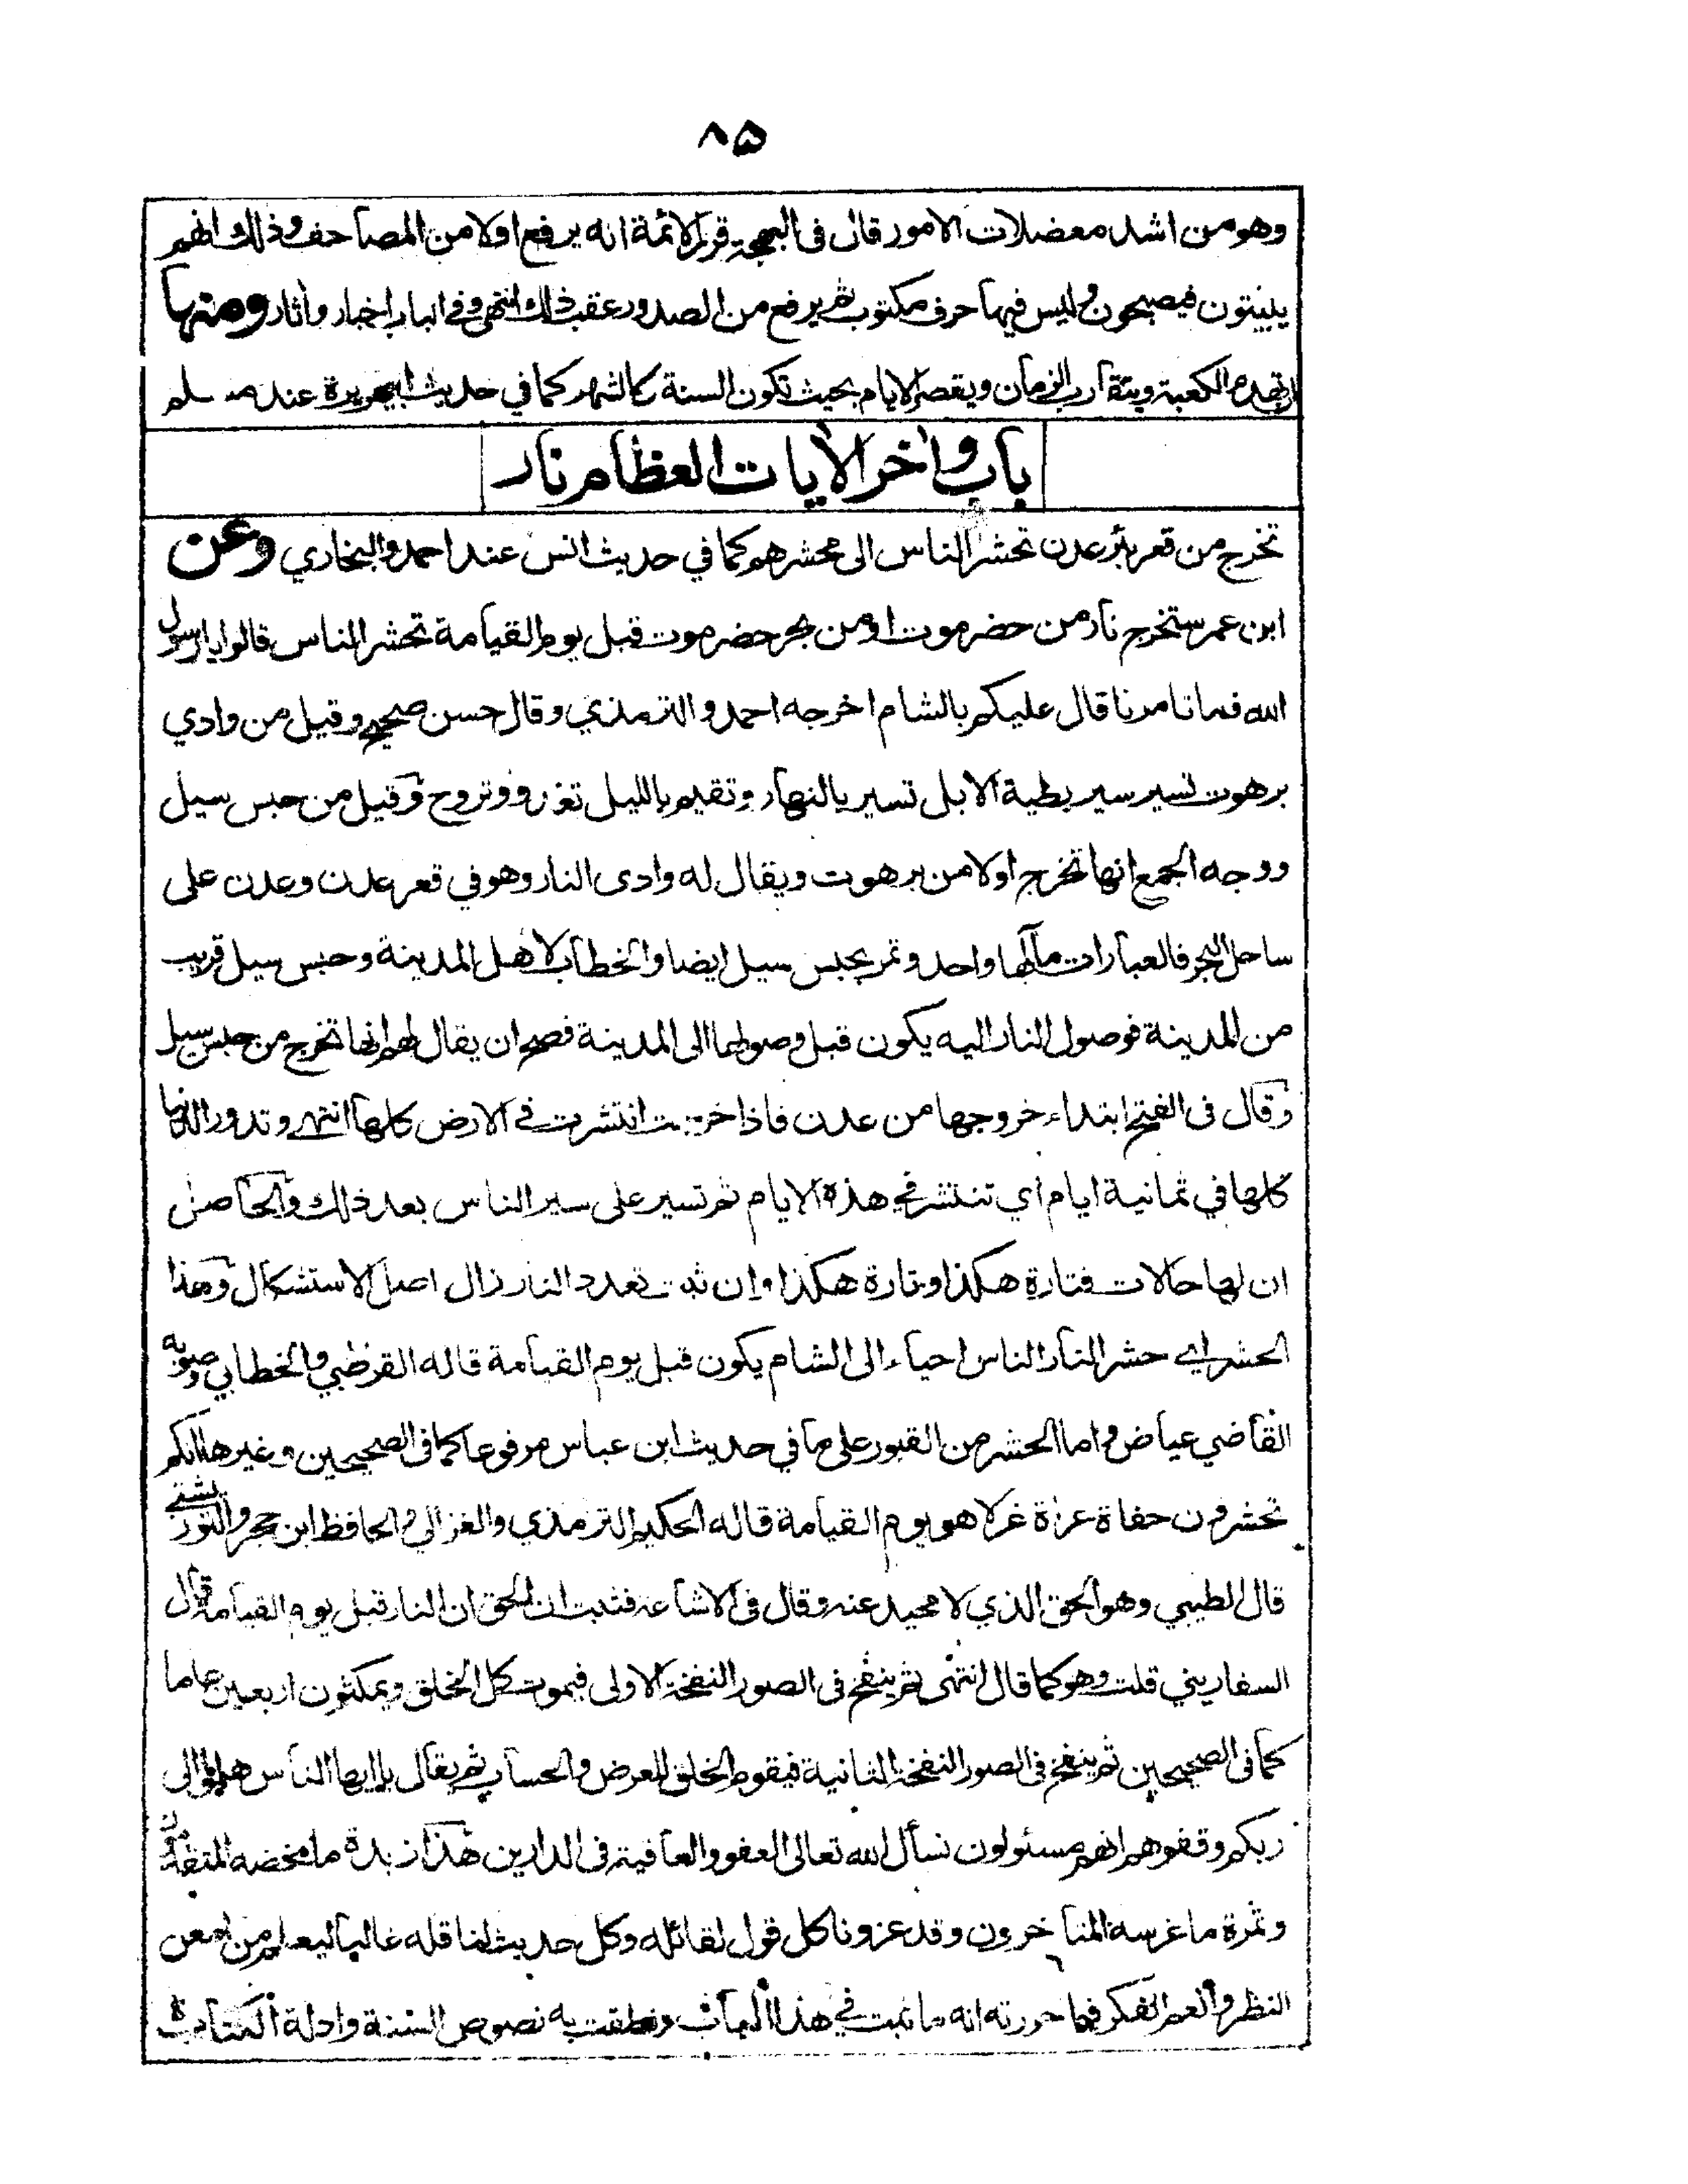 ٨٥
وهو من اشد معضلات الامور قال فى البهجة قرر الائمة انه يرفع اولا من المصاحف وذلك انهم
يبيتون فيصبحون وليس فيها حرف مكتوب ثم يرفع من الصدور عقب ذلك انتهى وفى الباب اخبار واثار ومنها
ان تهدم الكعبة ويتقارب الزمان ويقصر الايام بحيث تكون السنة كالشهر كما في حديث ابى هريرة عند مسلم
باب واخر الايات العظام نار
تخرج من قعر بئر عدن تحشر الناس الى محشرهم كما في حديث انس عند احمد والبخاري وعن
ابن عمر ستخرج نار من حضرموت او من بحر حضرموت قبل يوم القيامة تحشر الناس قالوا يا رسول
الله فما تامرنا قال عليكم بالشام اخرجه احمد والترمذي وقال حسن صحيح وقيل من وادي
برهوت تسير سير بطية الابل تسير بالنهار وتقيم بالليل تغدو وتروح وقيل من حبس سيل
ووجه الجمع انها تخرج اولا من برهوت ويقال له وادى النار وهو في قعر عدن وعدن على
ساحل البحر فالعبارات مآلها واحد وتمر بحبس سيل ايضا والخطاب لاهل المدينة وحبس سيل قريب
من المدينة فوصول النار اليه يكون قبل وصولها الى المدينة فصح ان يقال لهم انها تخرج من حبس سيل
وقال فى الفتح ابتداء خروجها من عدن فاذا خرجت انتشرت في الارض كلها انتهى وتدور الدنيا
كلها في ثمانية ايام اي تنتشر في هذه الايام ثم تسير على سير الناس بعد ذلك والحاصل
ان لها حالات فتارة هكذا وتارة هكذا وان ثبت تعدد النار زال اصل الاستشكال وهذا
الحشر اى حشر النار الناس احياء الى الشام يكون قبل يوم القيامة قاله القرطبي والخطابي وصوبه
القاضي عياض واما الحشر من القبور على ما في حديث ابن عباس مرفوعا كما فى الصحيحين وغيرهما انكم
تحشرون حفاة عراة غرلا هو يوم القيامة قاله الحكيم الترمذي والغزالي والحافظ ابن حجر والتوربشتى
قال الطيبي وهو الحق الذي لا محيد عنه وقال فى الاشاعة فثبت ان الحق ان النار قبل يوم القيامة قال
السفاريني قلت وهو كما قال انتهى ثم ينفخ فى الصور النفخة الاولى فيموت كل الخلق ويمكثون اربعين عاما
كما فى الصحيحين ثم ينفخ فى الصور النفخة الثانية فيقوم الخلق للعرض والحساب ثم يقال يا ايها الناس هلموا الى
ربكم وقفوهم انهم مسئولون نسأل الله تعالى العفو والعافية فى الدارين هذا زبدة ما مخضه المتقدمون
وثمرة ما غرسه المتاخرون وقد عزونا كل قول لقائله وكل حديث لناقله غالبا ليعلم من امعن
النظر وانعم الفكر فيما حررته انه ما ثبت في هذا الباب ونطقت به نصوص السنة وادلة الكتاب